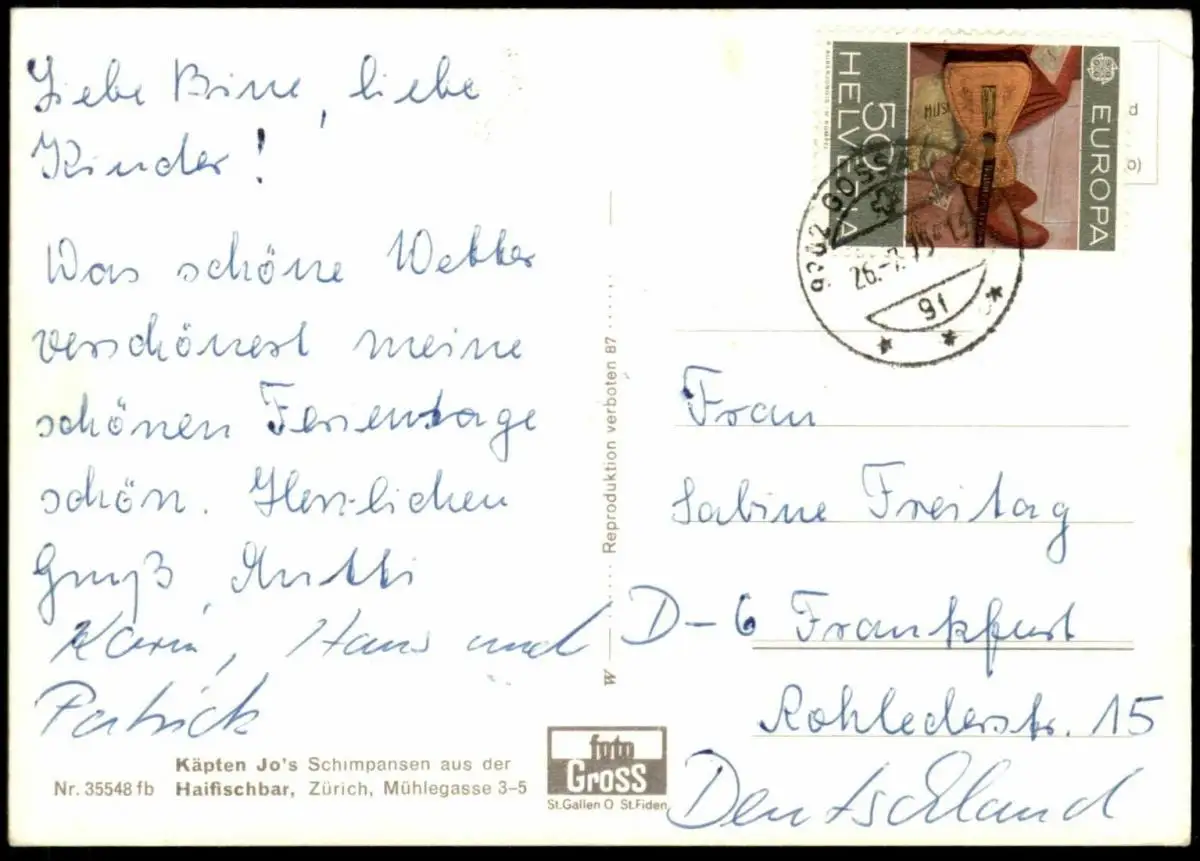 Liebe Bine, liebe
Kinder!
Was schöne Wetter
verschönert meine
schönen Ferientage
schön. Herzlichen
Gruß, Mutti
Karin, Hans und
Patrick
Käpten Jo's Schimpansen aus der
Nr. 35548 fb Haifischbar, Zürich, Mühlegasse 3-5
foto
Gross
St.Gallen O St.Fiden
W Reproduktion verboten 87
HELVETIA
50
EUROPA
9202 GOSSAU
26.-7.75-15
g1
d
o)
Frau
Sabine Freitag
D-6 Frankfurt
Rohlederstr. 15
Deutschland